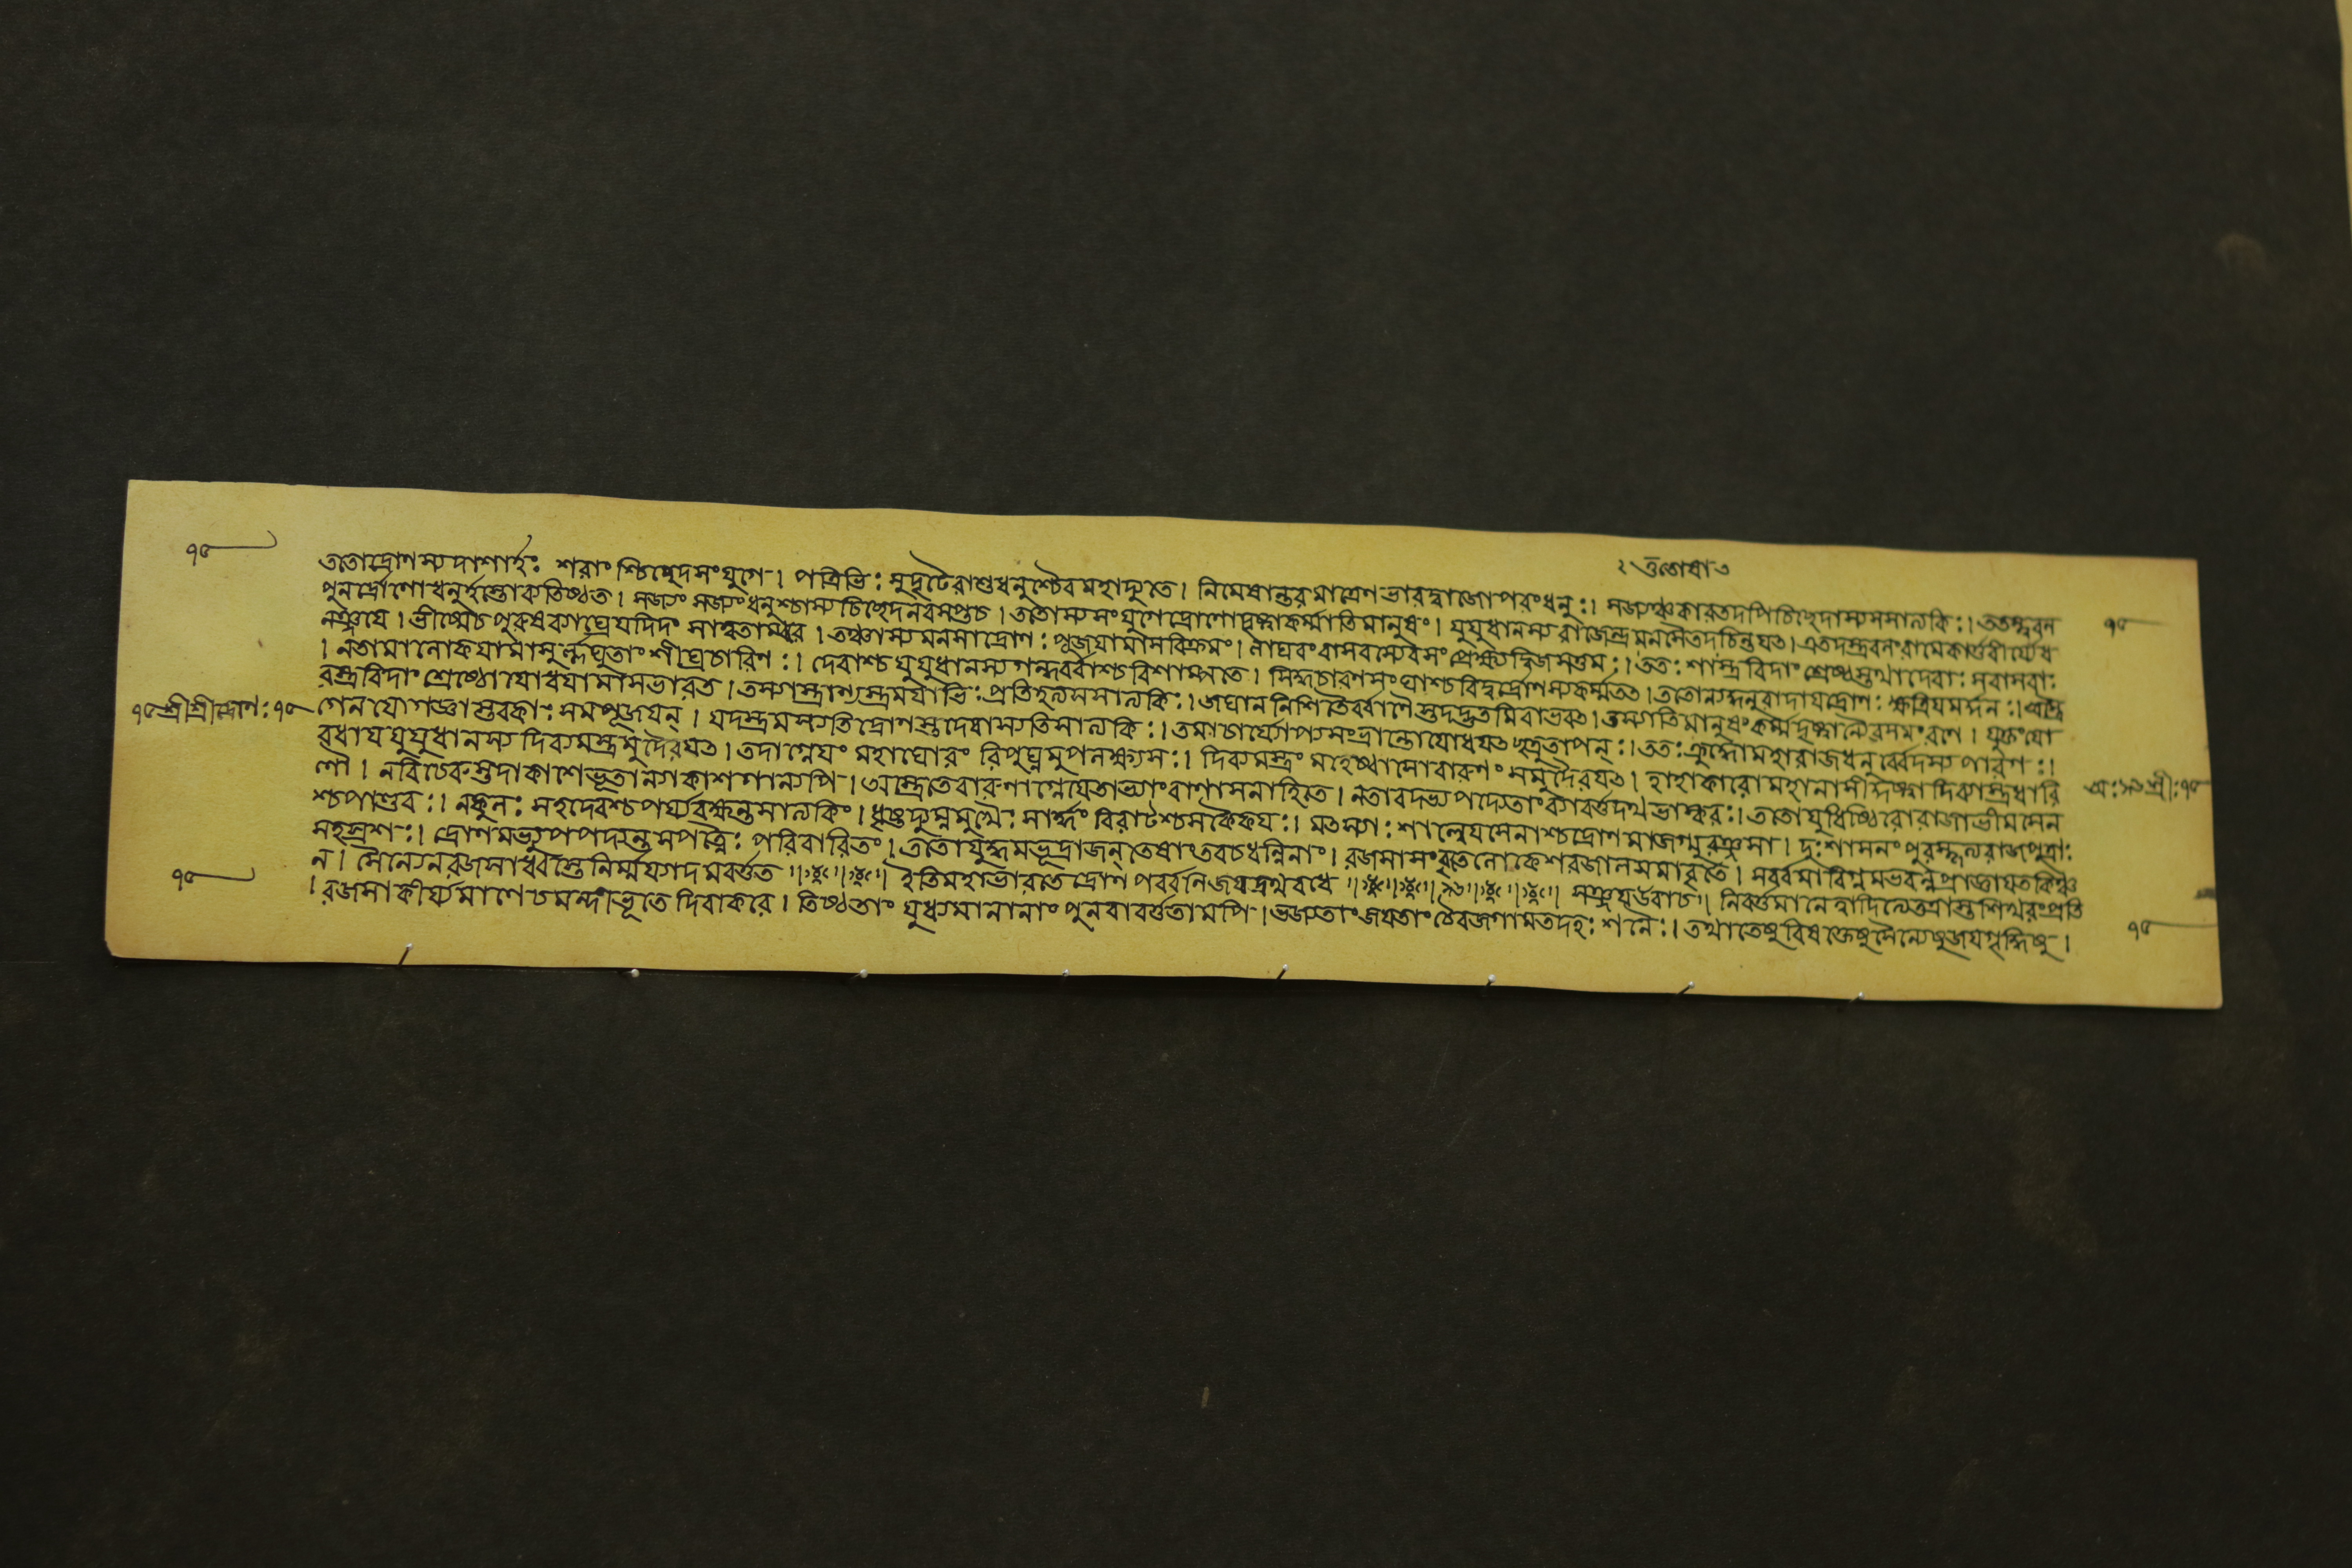 ২ ততোধাত
ততোদ্রোণস্যদাশার্হঃ শরাংশ্চিচ্ছেদসংযুগে। পত্রিভিঃ সুদৃঢৈরাশুধনুশ্চৈবমহাদ্যুতে। নিমেষান্তরমাত্রেণভারদ্বাজোপরংধনুঃ। সজ্যঞ্চকারতদপিচিচ্ছেদাস্যসসাত্যকিঃ। ততস্ত্বরন
পুনর্দ্রোণোধনুর্হস্তোব্যতিষ্ঠত। সজ্যং সজ্যংধনুশ্চাস্যচিচ্ছেদনবসপ্তচ। ততোস্যসংযুগেদ্রোণোদৃষ্ট্বাকর্ম্মাতিমানুষং। যুযুধানস্যরাজেন্দ্রমনসৈতদচিন্তযত। এতদস্ত্রবলংরামেকার্ত্তবীর্য্যেধ
নঞ্জযে। ভীষ্মেচপুরুষব্যাঘ্রেযদিদং সাত্বতাম্বরে। তঞ্চাস্যমনসাদ্রোণঃ পূজযামাসবিক্রমং। লাঘবংবাসবস্যেবসংপ্রেক্ষ্যদ্বিজসত্তমঃ। ততঃ শাস্ত্রবিদাং শ্রেষ্ঠস্তথাদেবাঃ সবাসবাঃ
। নতামালোকযামাসুর্ল্লঘুতাং শীঘ্রচারিণঃ। দেবাশ্চযুযুধানস্যগন্ধর্ব্বাশ্চবিশাম্পতে। সিদ্ধচারণসংঘাশ্চবিদুর্দ্রোণস্যকর্ম্মতৎ। ততোন্যদ্ধনুরাদাযদ্রোণঃ ক্ষত্রিযমর্দ্দনঃ। অস্ত্রৈ
রস্ত্রবিদাং শ্রেষ্ঠোযোধযামাসভারত। তস্যাস্ত্রাণ্যস্ত্রমাযাভিঃ প্রতিহত্যসসাত্যকিঃ। জঘাননিশিতৈর্ব্বাণৈস্তদদ্ভুতমিবাভবৎ। তস্যাতিমানুষংকর্ম্মদৃষ্ট্বান্যৈরসমংরণে। যুক্তংযো
গেনযোগজ্ঞাস্তাবকাঃ সমপূজযন্। যদস্ত্রমস্যতিদ্রোণস্তদেবাস্যতিসাত্যকিঃ। তমাচার্য্যোপ্যসংভ্রান্তোযোধযৎশত্রুতাপন্ঃ। ততঃ ক্রুদ্ধোমহারাজধনুর্ব্বেদস্যপারগঃ।
বধাযযুযুধানস্যদিব্যমস্ত্রমুদৈরযৎ। তদাগ্নেযং মহাঘোরং রিপুঘ্নমুপলক্ষ্যসঃ। দিব্যমস্ত্রং মহেষ্বাসোবারুণং সমুদৈরযৎ। হাহাকারোমহানাসীদ্দৃষ্ট্বাদিব্যাস্ত্রধারি
ণৌ। নবিচেরুস্তদাকাশেভূতান্যাকাশগান্যপি। অস্ত্রেতেবারুণাগ্নেযেতাভ্যাংবাণাসনাহিতে। নতাবদভ্যপদ্যেতাংব্যাবর্ত্তদথভাস্করঃ। ততোযুধিষ্ঠিরোরাজাভীমসেন
শ্চপাণ্ডবঃ। নকুলঃ সহদেবশ্চপর্য্যরক্ষন্তসাত্যকিং। ধৃষ্টদ্যুম্নমুখৈঃ সার্দ্ধং বিরাটশ্চসকৈকযঃ। মৎস্যাঃ শাল্বেযসেনাশ্চদ্রোণমাজগ্মুরঞ্জসা। দুঃশাসনং পুরস্কৃত্যরাজপুত্রাঃ
সহস্রশঃ। দ্রোণমভ্যুপপদ্যন্তসপত্নৈঃ পরিবারিতং। ততোযুদ্ধমভূদ্রাজন্তেষাংতবচধন্বিনাং। রজসাসংবৃতেলোকেশরজালসমাবৃতে। সর্ব্বমাবিগ্নমভবন্নপ্রাজ্ঞাযতকিঞ্চ
ন। সৈন্যেনরজসাধ্বস্তেনির্ম্মর্যাদমবর্ত্তত ইতিমহাভারতেদ্রোণপর্ব্বনিজযদ্রথবধে ৯৬ সঞ্জযউবাচ। নিবর্ত্তমানেত্বাদিত্যেতত্রাস্তশিখরংপ্রতি
। রজসাকীর্য্যমাণেচমন্দীভূতে দিবাকরে। তিষ্ঠতাং যুধ্যমানানাং পুনরাবর্ত্ততামপি। ভজ্যতাংজযতাংচৈবজগামতদহঃ শনৈঃ। তথাতেষুবিষক্তেষুসৈন্যেষুজযগৃদ্ধিষু।
১৫ শ্রীশ্রীদ্রোণঃ ১৫